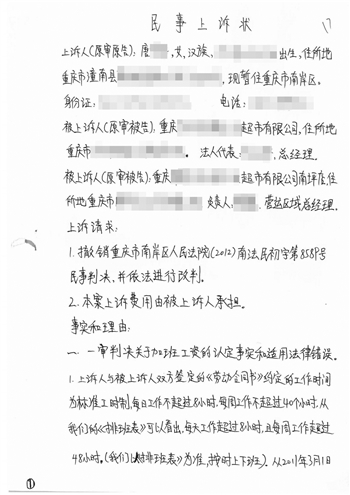 民事上诉状
17
上诉人(原审原告):唐 ,女、汉族, 出生,住所地
重庆市潼南县 ,现暂住重庆市南岸区。
身份证: 电话:
被上诉人(原审被告):重庆 超市有限公司,住所地
重庆市 。法人代表: ,总经理.
被上诉人(原审被告):重庆 超市有限公司南坪店.住
所地重庆市 负责人: .营运区域总经理.
上诉请求:
1.撤销重庆市南岸区人民法院(2012)南法民初字第8589号
民事判决、并依法进行改判。
2.本案上诉费用由被上诉人承担。
事实和理由:
一.一审判决关于加班工资的认定事实和适用法律错误。
1.上诉人与被上诉人双方签定的《劳动合同书》约定的工作时间
为标准工时制,每日工作不超过8小时,每周工作不超过40个小时.从
我们的《排班表》可以看出,每天工作超过8小时,且每周工作超过
48小时。(我们以排班表》为准,按时上下班). 从2011年3月1
①